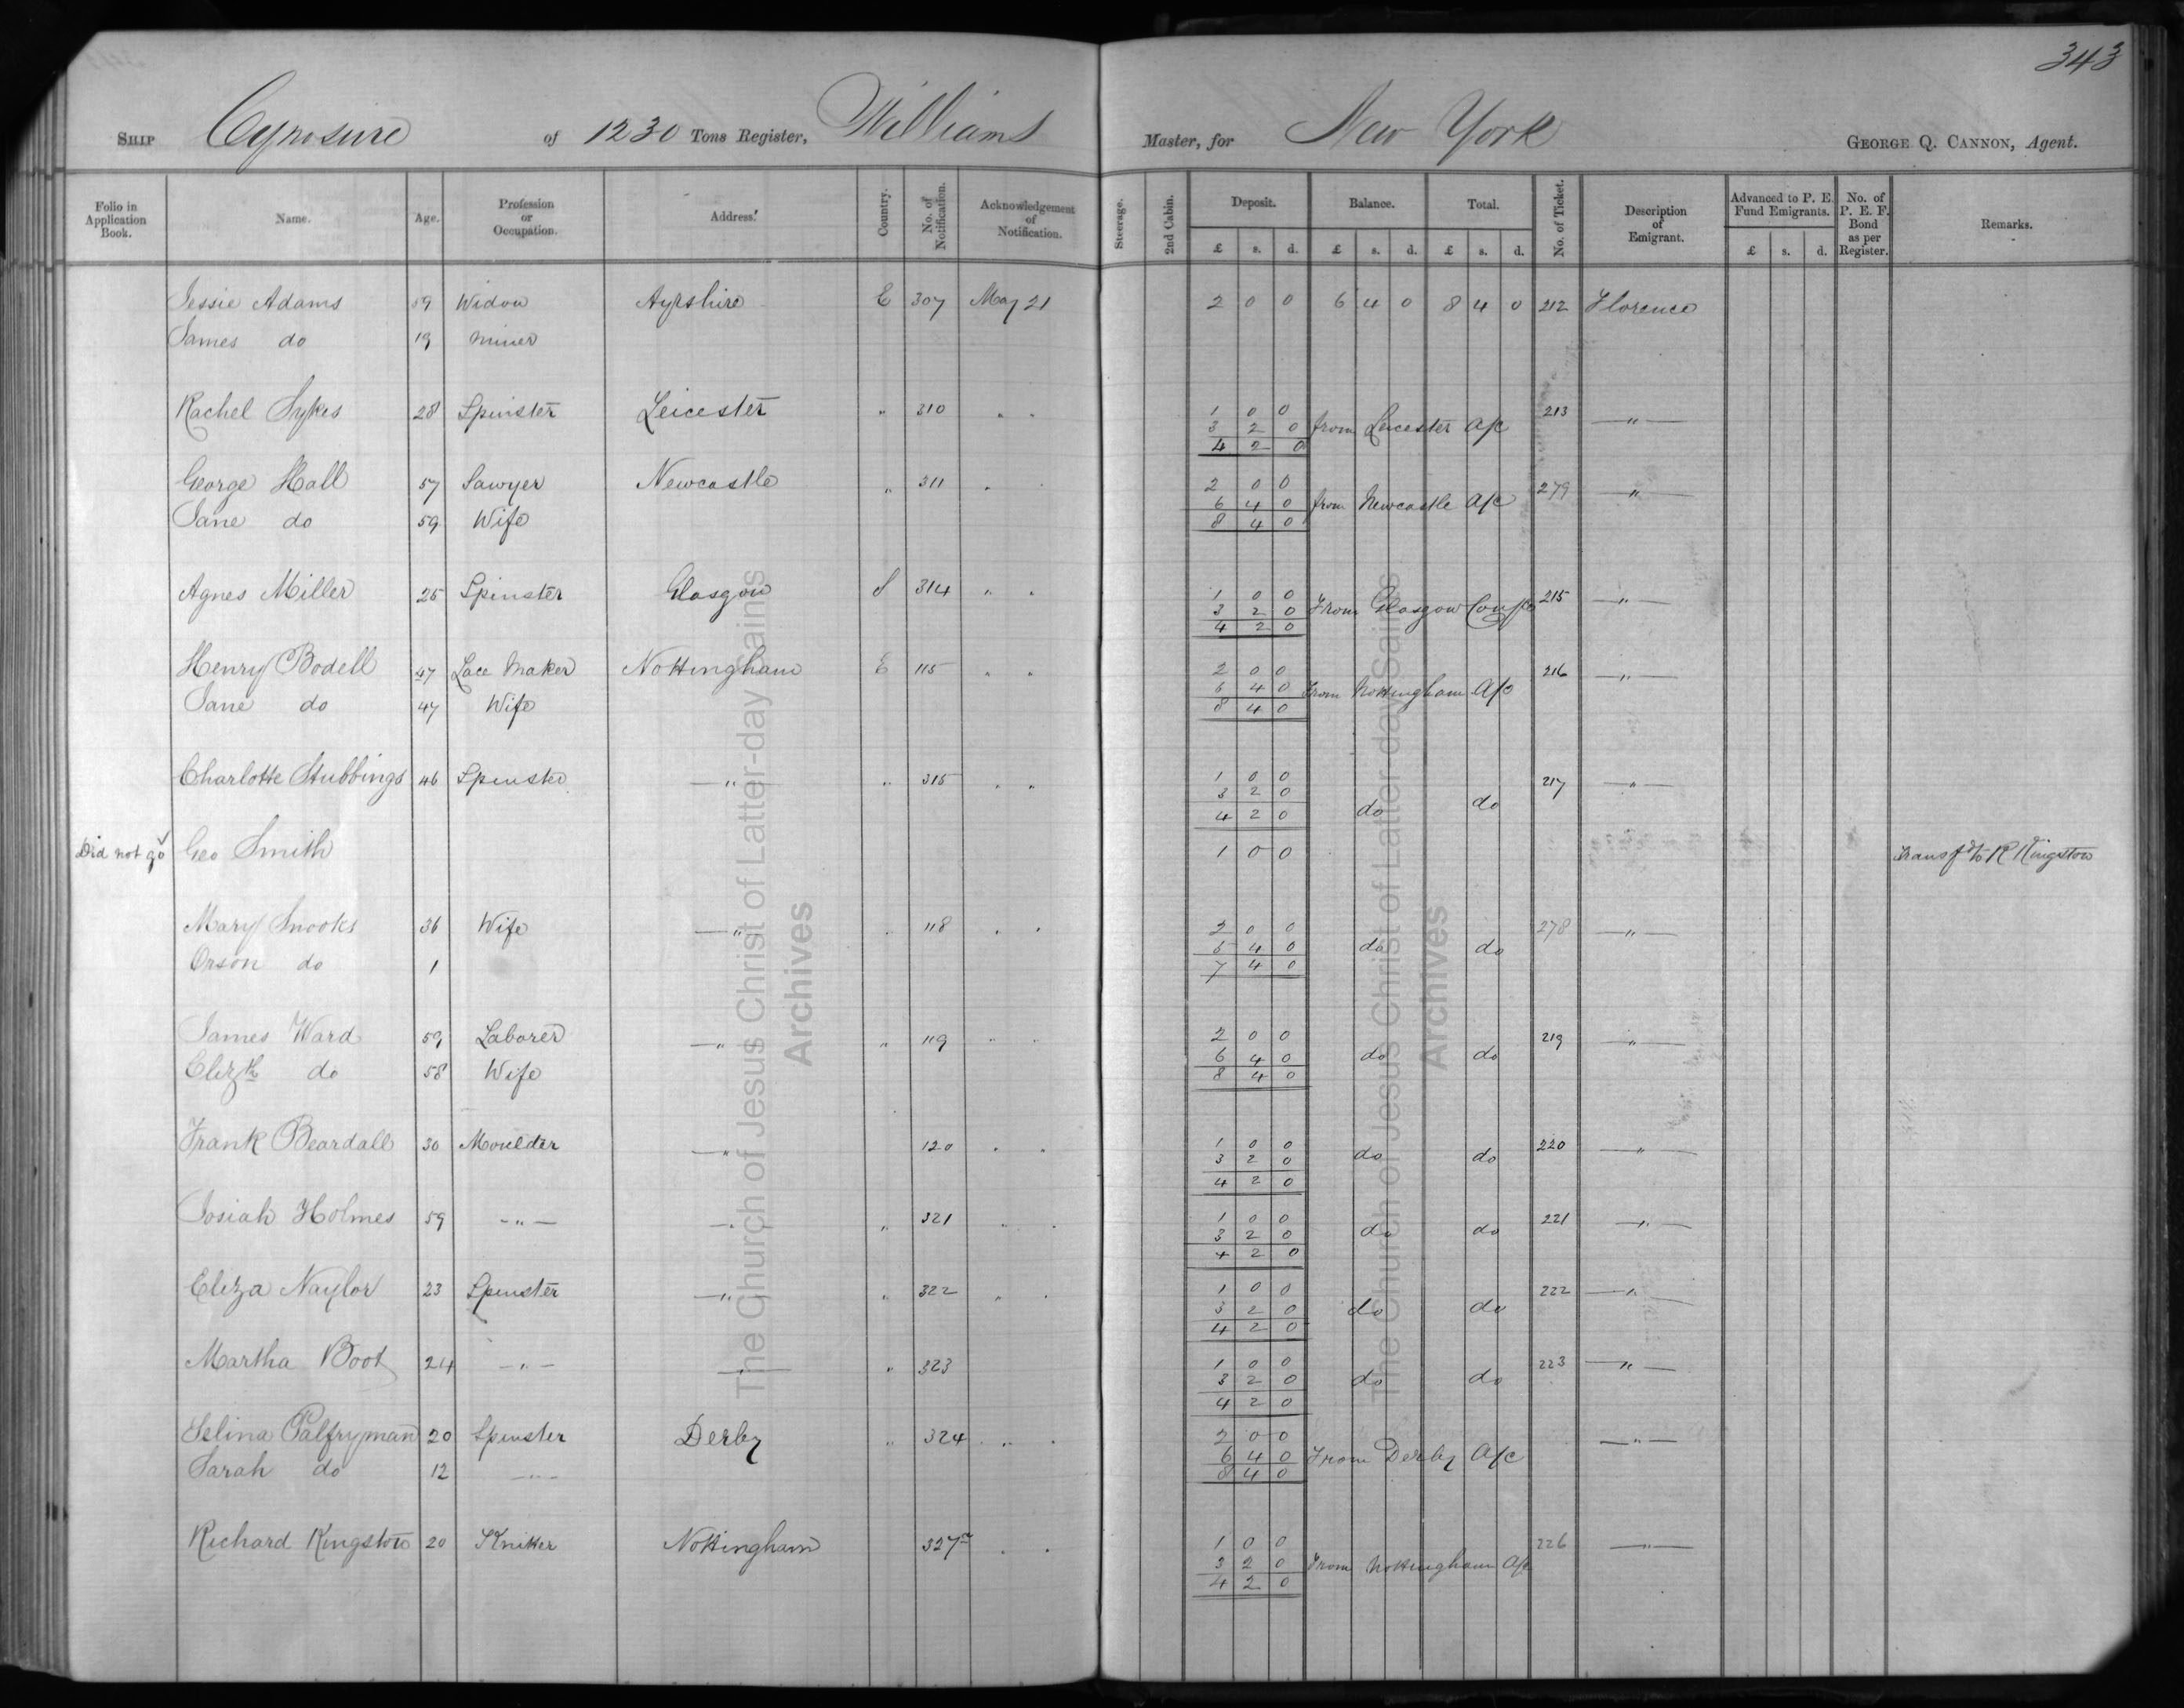 343
SHIP Cynosure of 1230 Tons Register, Williams Master, for New York GEORGE Q. CANNON, Agent.
Folio in Application Book. Name. Age. Profession or Occupation. Address. Country. No. of Notification. Acknowledgement of Notification. Steerage. 2nd Cabin. Deposit. Balance. Total. No. of Ticket. Description of Emigrant. Advanced to P. E. Fund Emigrants. No. of P. E. F. Bond as per Register. Remarks.
£ s. d. £ s. d. £ s. d. £ s. d.
Jessie Adams 59 Widow Ayrshire E 307 May 21 2 0 0 6 4 0 8 4 0 212 Florence
James do 19 Miner
Rachel Sykes 28 Spinster Leicester " 310 " " 1 0 0 213 "
3 2 0 from Leicester A/c
4 2 0
George Hall 57 Sawyer Newcastle " 311 " 2 0 0 279 "
6 4 0 from Newcastle A/c
Jane do 59 Wife 8 4 0
Agnes Miller 25 Spinster Glasgow S 314 " " 1 0 0 215 "
3 2 0 From Glasgow Conf
4 2 0
Henry Bodell 47 Lace Maker Nottingham E 115 " " 2 0 0 216 "
6 4 0 From Nottingham A/c
Jane do 47 Wife 8 4 0
Charlotte Stubbings 46 Spinster " " 315 " " 1 0 0 217 "
3 2 0
4 2 0 do do
Did not go Geo Smith 1 0 0 Transfd to R Kingston
Mary Snooks 36 Wife " " 118 " " 2 0 0 278 "
5 4 0 do do
Orson do 1 7 4 0
James Ward 59 Laborer " " 119 " " 2 0 0 219 "
6 4 0 do do
Elizth do 58 Wife 8 4 0
Frank Beardall 30 Moulder " 120 " " 1 0 0 220 "
3 2 0 do do
4 2 0
Josiah Holmes 59 " " " 321 " " 1 0 0 221 "
3 2 0 do do
4 2 0
Eliza Naylor 23 Spinster " " 322 " " 1 0 0 222 "
3 2 0 do do
4 2 0
Martha Boot 24 " " " 323 1 0 0 223 "
3 2 0 do do
4 2 0
Selina Palfryman 20 Spinster Derby " 324 " " 2 0 0 "
6 4 0 From Derby A/c
Sarah do 12 " 8 4 0
Richard Kingston 20 Knitter Nottingham 327 " " 1 0 0 226 "
3 2 0 From Nottingham A/c
4 2 0
The Church of Jesus Christ of Latter-day Saints
Archives
The Church of Jesus Christ of Latter-day Saints
Archives